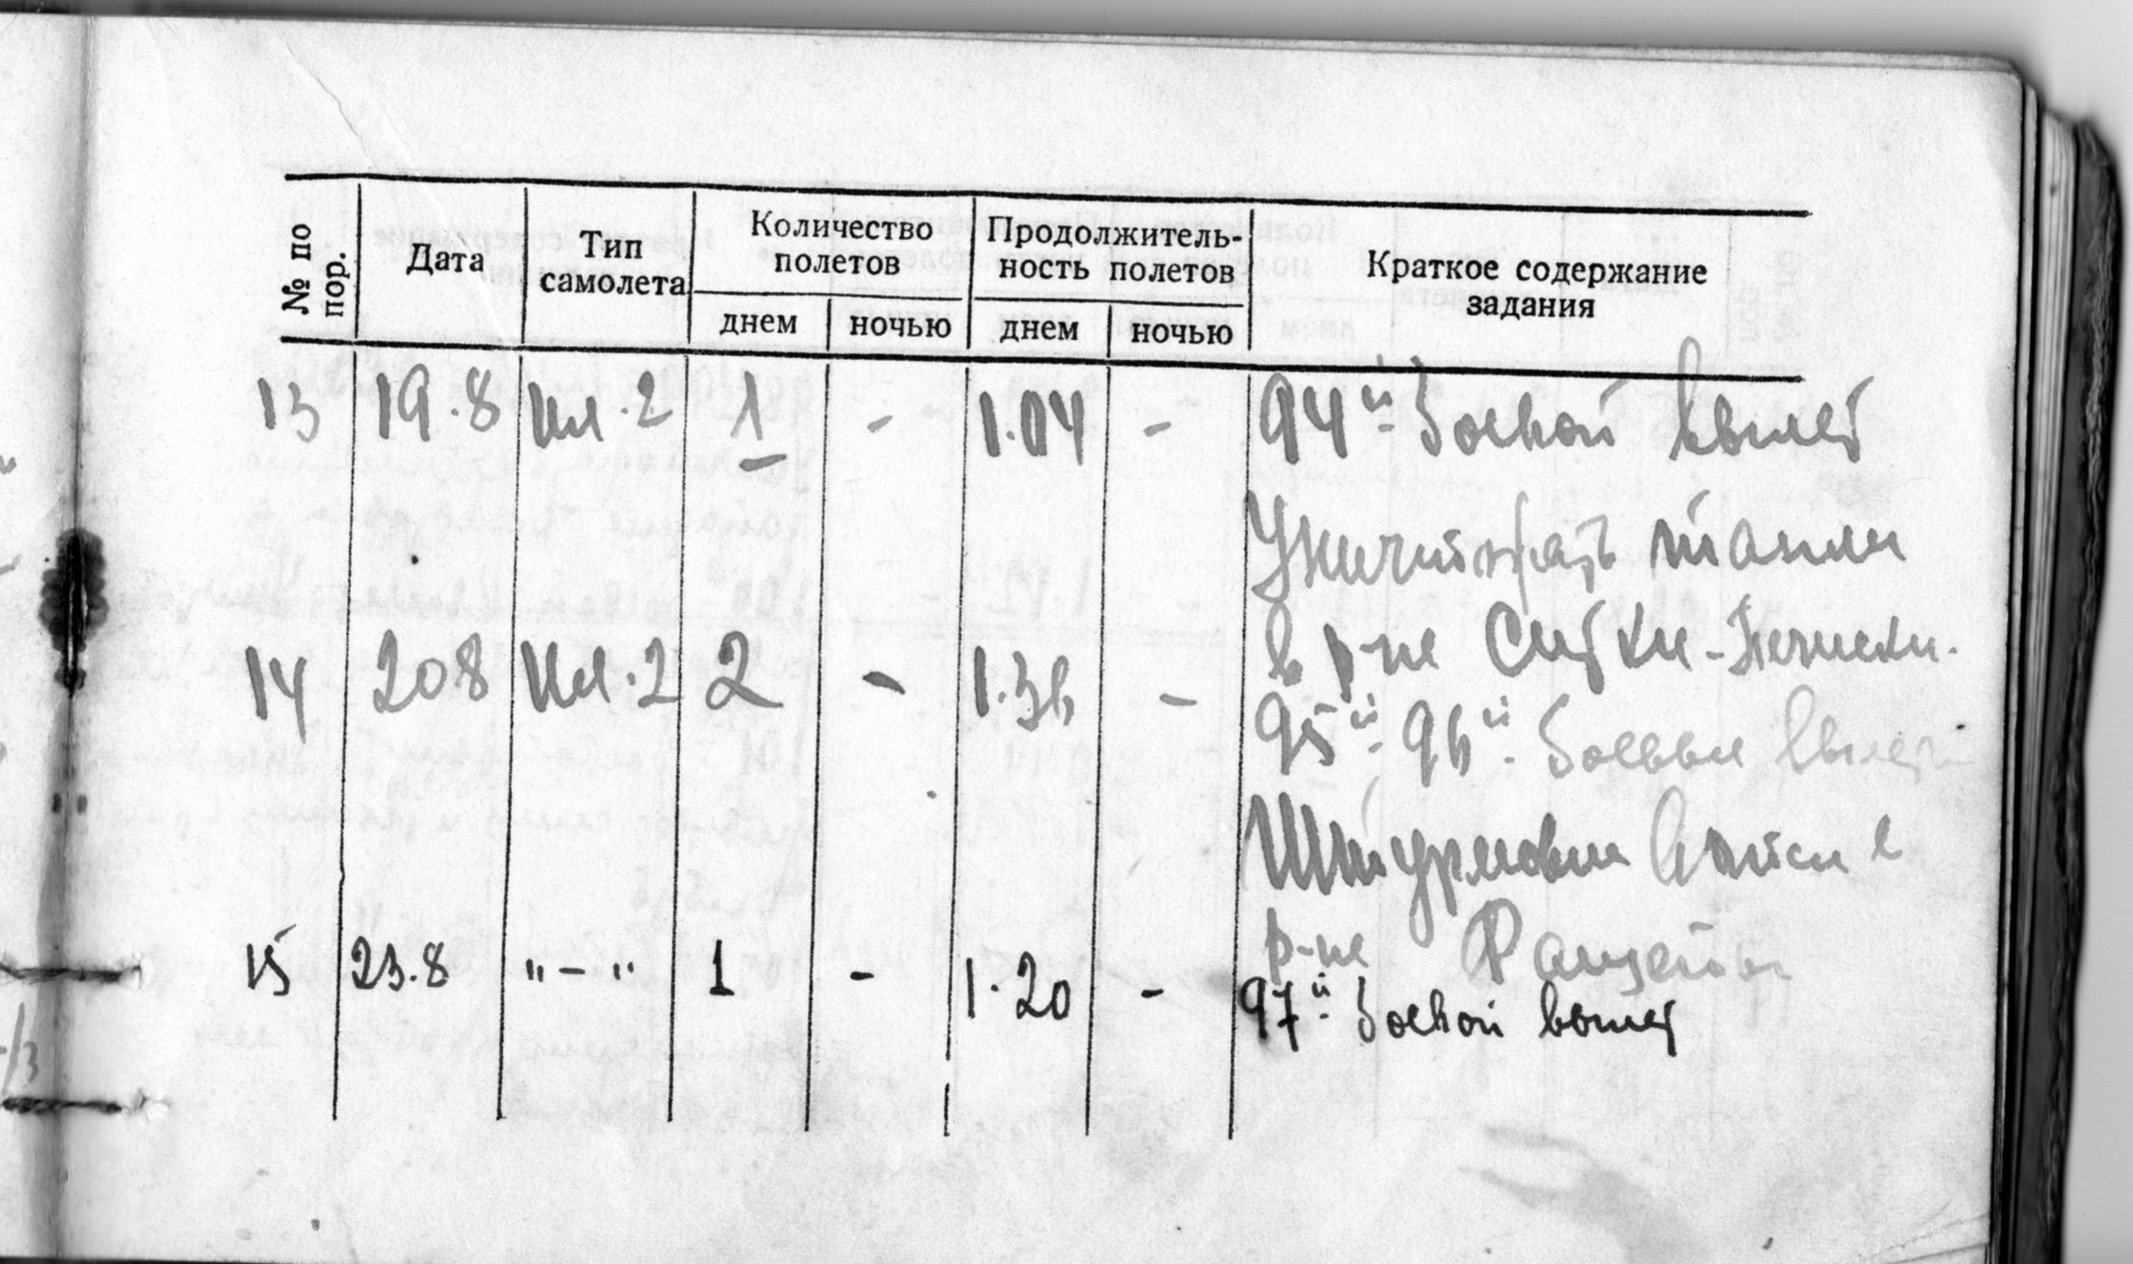 № по пор. Дата Тип самолета Количество полетов Продолжитель-ность полетов Краткое содержание задания
днем ночью днем ночью
13 19.8 Ил.2 1 - 1.04 - 94й боевой вылет
Уничтожать танки
в р-не
14 20.8 Ил.2 2 - 1.36 - 95й 96й боевые вылет
Штурмовки
р-не
15 23.8 "-" 1 - 1.20 - 97й боевой вылет